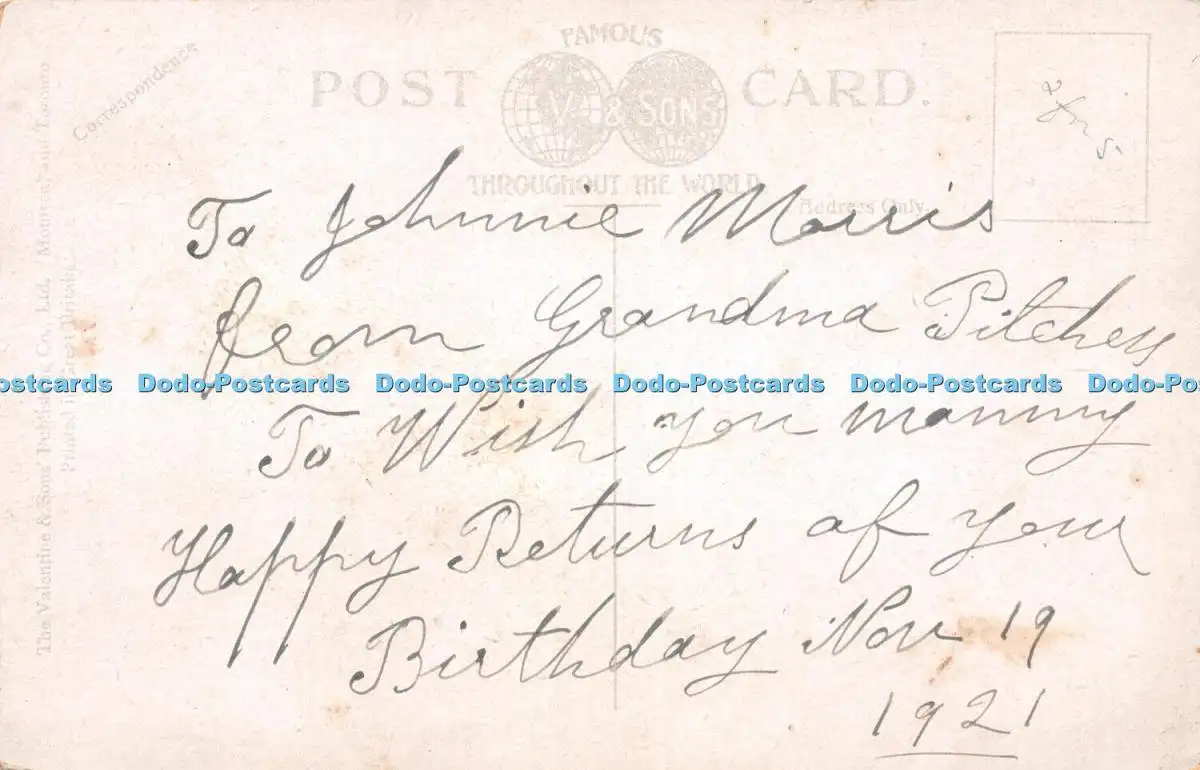 FAMOUS
POST CARD.
V. & SONS
THROUGHOUT THE WORLD
Correspondence
Address Only.
The Valentine & Sons' Publishing Co., Ltd. Montreal and Toronto
Printed in Great Britain
To Johnnie Morris
from Grandma Pitchess
To Wish you manny
Happy Returns of your
Birthday Nov 19
1921
ostcards Dodo-Postcards Dodo-Postcards Dodo-Postcards Dodo-Postcards Dodo-Post